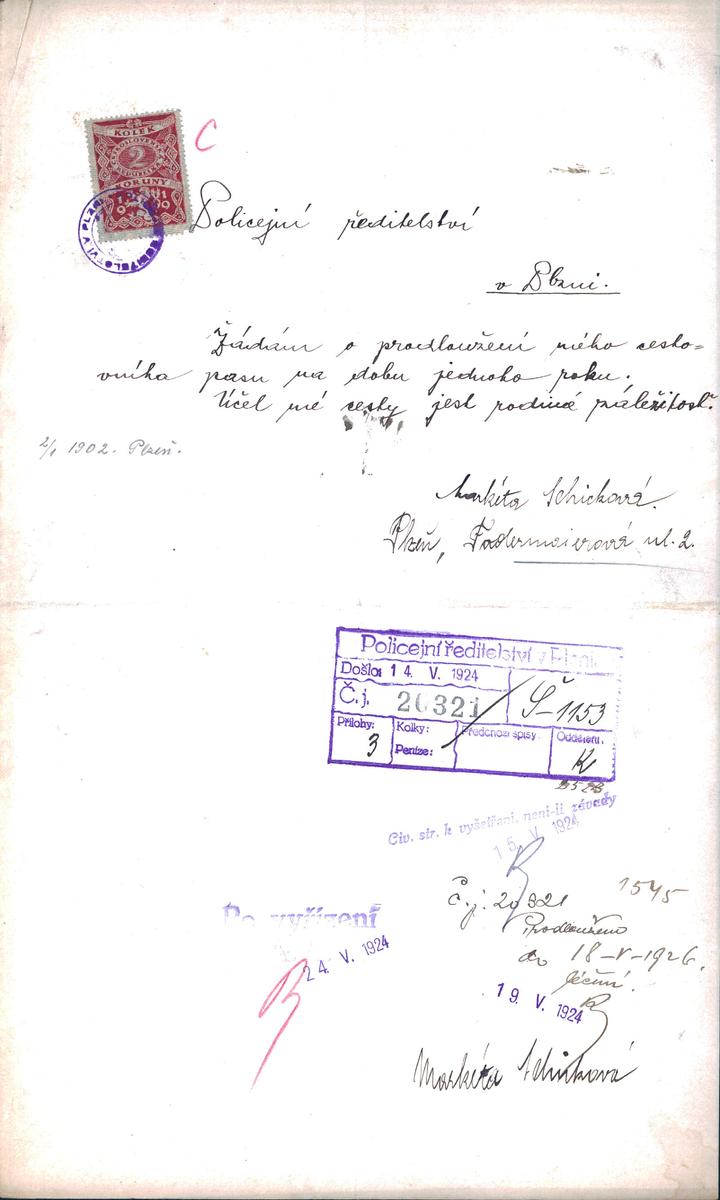 KOLEK
2
KORUNY
C
Policejní ředitelství
v Plzni.
Žádám o prodloužení mého cesto=
vního pasu na dobu jednoho roku.
Účel mé cesty jest rodiná záležitost.
2/1 1902. Plzeň.
Markéta Schicková.
Plzeň, Fodermaierová ul. 2.
Policejní ředitelství v Plzni
Došlo: 14. V. 1924
Č.j. 20321
Š-1153
Přílohy: 3
Kolky:
Peníze:
Předchozí spisy:
Oddělení: K
Civ. str. k vyšetření, není-li závady
15. V. 1924
Č.j. 20321
1545
Prodlouženo
do 18-V-1926.
léčení.
19. V. 1924
Po vyřízení
24. V. 1924
Markéta Schicková